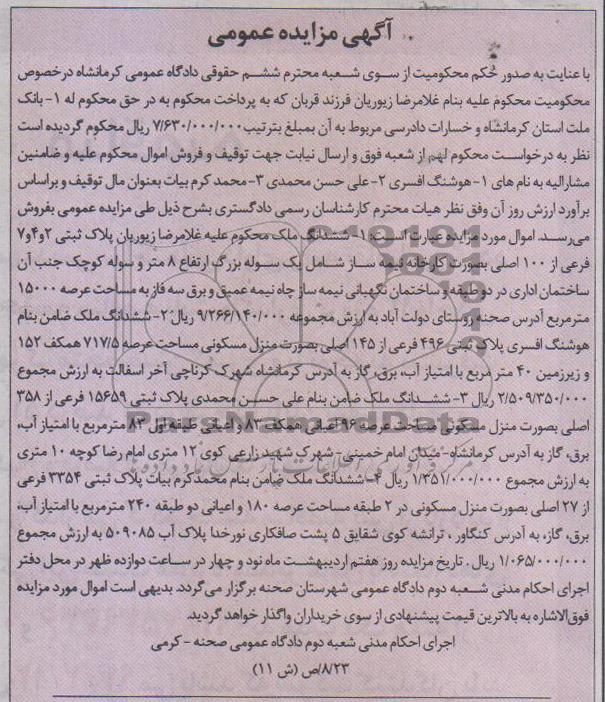 آگهی مزایده عمومی
با عنایت به صدور حُکم محکومیت از سوی شعبه محترم ششم حقوقی دادگاه عمومی کرمانشاه درخصوص
محکومیت محکوم علیه بنام غلامرضا زیوریان فرزند قربان که به پرداخت محکوم به در حق محکوم له ۱-بانک
ملت استان کرمانشاه و خسارات دادرسی مربوط به آن بمبلغ بترتیب ۷/۶۳۰/۰۰۰/۰۰۰ ریال محکوم گردیده است
نظر به درخواست محکوم لهم از شعبه فوق و ارسال نیابت جهت توقیف و فروش اموال محکوم علیه و ضامنین
مشارالیه به نام های ۱-هوشنگ افسری ۲-علی حسن محمدی ۳-محمد کرم بیات بعنوان مال توقیف و براساس
برآورد ارزش روز آن وفق نظر هیات محترم کارشناسان رسمی دادگستری بشرح ذیل طی مزایده عمومی بفروش
می‌رسد. اموال مورد مزایده عبارت است از: ۱-ششدانگ ملک محکوم علیه غلامرضا زیوریان پلاک ثبتی ۲و۴و۷
فرعی از ۱۰۰ اصلی بصورت کارخانه نیمه ساز شامل یک سوله بزرگ ارتفاع ۸ متر و سوله کوچک جنب آن
ساختمان اداری در دو طبقه و ساختمان نگهبانی نیمه ساز چاه نیمه عمیق و برق سه فاز به مساحت عرصه ۱۵۰۰۰
مترمربع آدرس صحنه روستای دولت آباد به ارزش مجموعه ۹/۲۶۶/۱۴۰/۰۰۰ ریال ۲-ششدانگ ملک ضامن بنام
هوشنگ افسری پلاک ثبتی ۴۹۶ فرعی از ۱۴۵ اصلی بصورت منزل مسکونی مساحت عرصه ۷۱۷/۵ همکف ۱۵۲
و زیرزمین ۴۰ متر مربع با امتیاز آب، برق، گاز به آدرس کرمانشاه شهرک کرناچی آخر اسفالت به ارزش مجموع
۲/۵۰۹/۳۵۰/۰۰۰ ریال ۳-ششدانگ ملک ضامن بنام علی حسن محمدی پلاک ثبتی ۱۵۶۵۹ فرعی از ۳۵۸
اصلی بصورت منزل مسکونی مساحت عرصه ۹۶ اعیانی همکف ۸۳ و اعیانی طبقه اول ۸۳ مترمربع با امتیاز آب،
برق، گاز به آدرس کرمانشاه-میدان امام خمینی-شهرک شهید زارعی کوی ۱۲ متری امام رضا کوچه ۱۰ متری
به ارزش مجموع ۱/۳۵۱/۰۰۰/۰۰۰ ریال ۴-ششدانگ ملک ضامن بنام محمدکرم بیات پلاک ثبتی ۳۳۵۴ فرعی
از ۲۷ اصلی بصورت منزل مسکونی در ۲ طبقه مساحت عرصه ۱۸۰ و اعیانی دو طبقه ۲۴۰ مترمربع با امتیاز آب،
برق، گاز، به آدرس کنگاور ، ترانشه کوی شقایق ۵ پشت صافکاری نورخدا پلاک آب ۵۰۹۰۸۵ به ارزش مجموع
۱/۰۶۵/۰۰۰/۰۰۰ ریال . تاریخ مزایده روز هفتم اردیبهشت ماه نود و چهار در ساعت دوازده ظهر در محل دفتر
اجرای احکام مدنی شعبه دوم دادگاه عمومی شهرستان صحنه برگزار می‌گردد. بدیهی است اموال مورد مزایده
فوق‌الاشاره به بالاترین قیمت پیشنهادی از سوی خریداران واگذار خواهد گردید.
اجرای احکام مدنی شعبه دوم دادگاه عمومی صحنه - کرمی
۸/۲۳/ص (ش ۱۱)
ParsNamadData